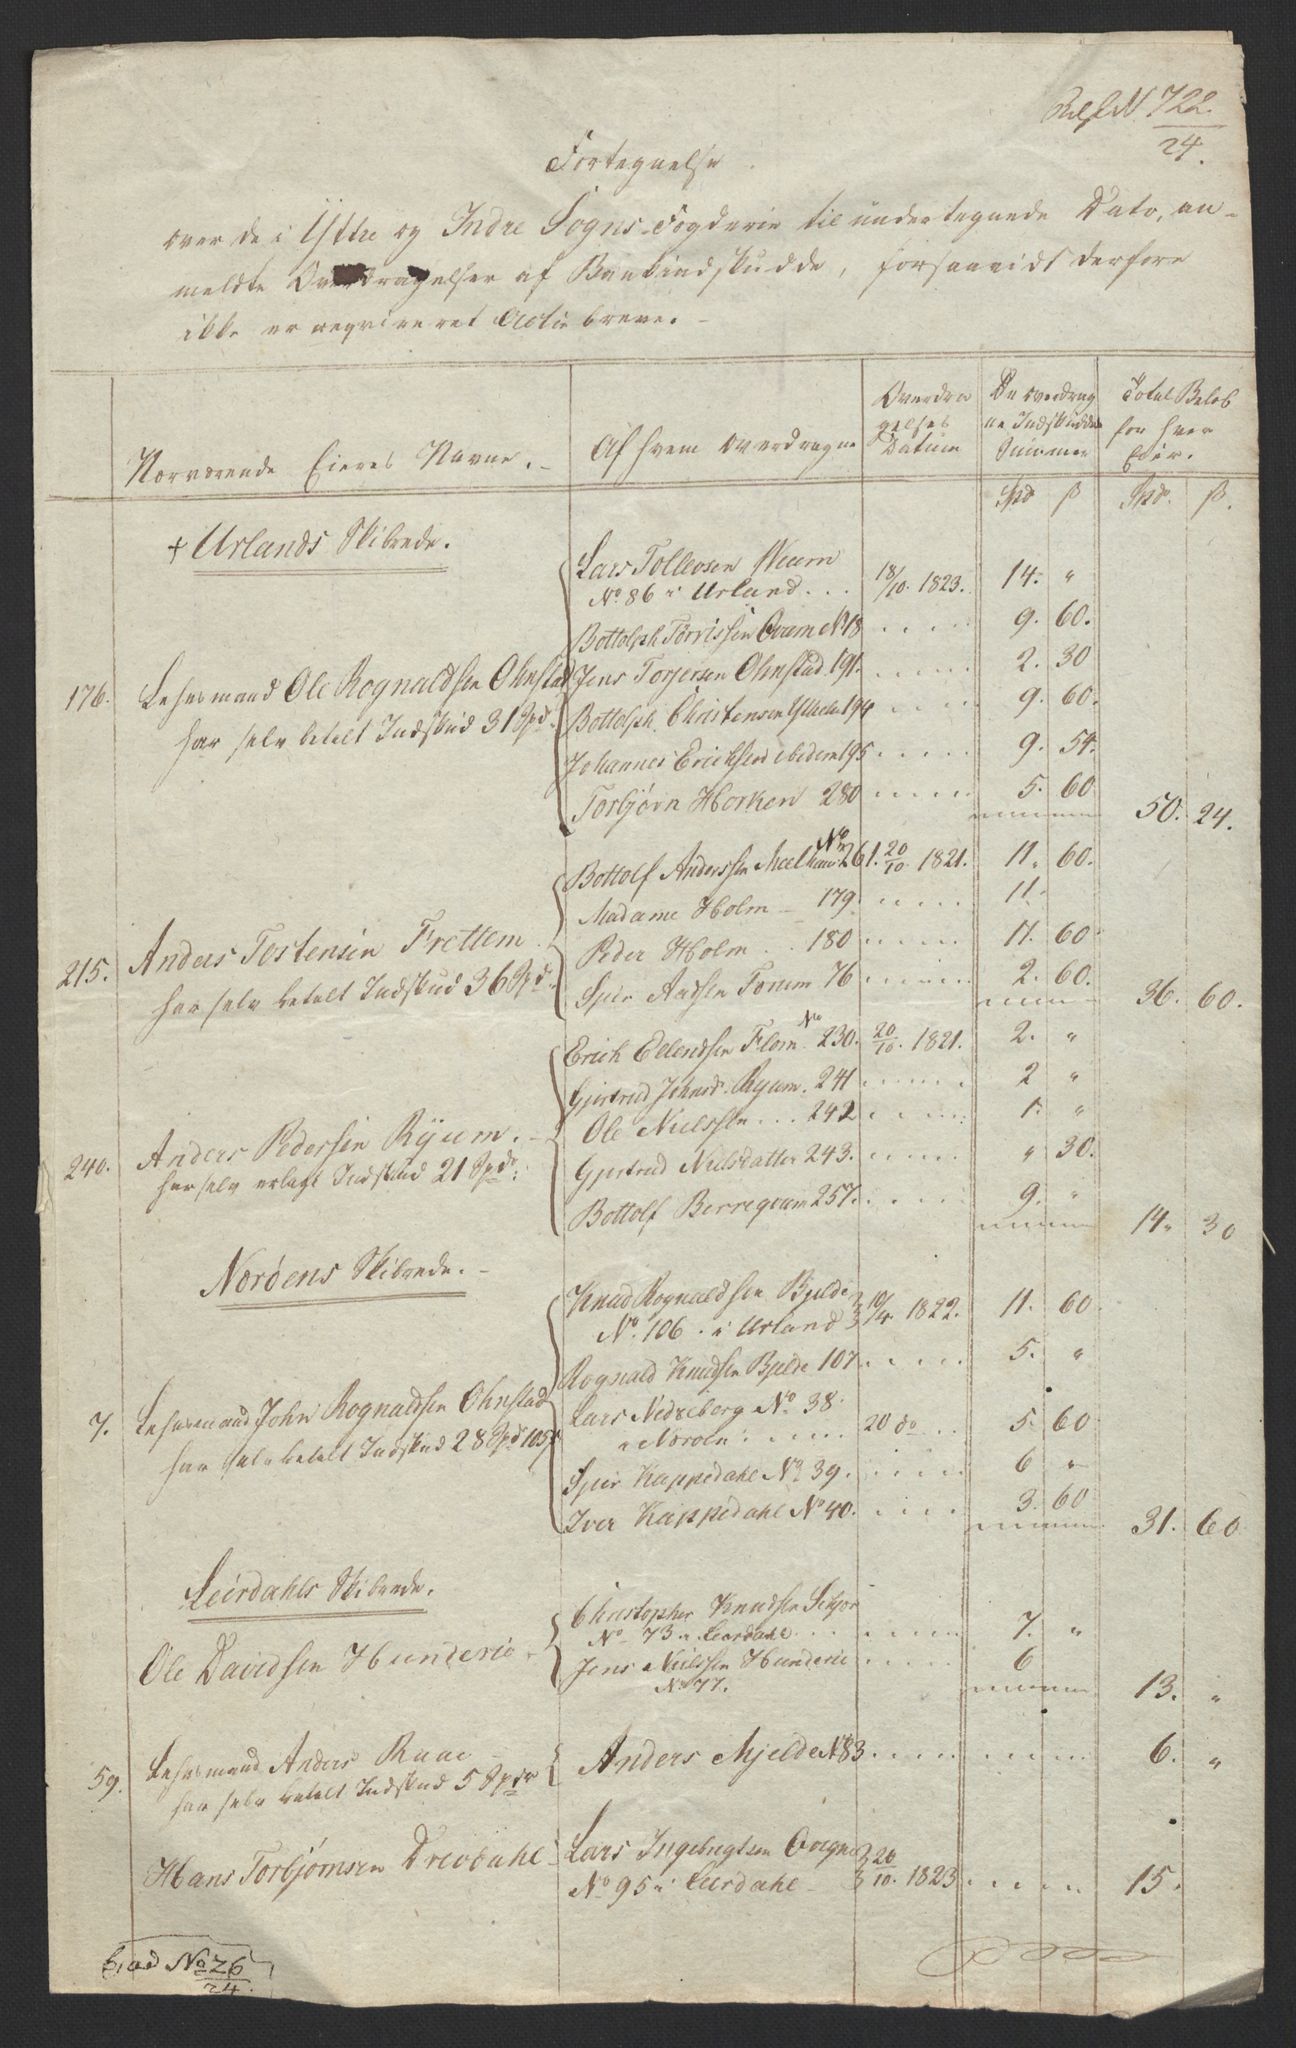 N 722.
24.
Fortegnelse
over de i Yttre og Indre Sogns Fogderie til undertegnede Dato, an-
meldte Overdragelser af Bankindskudde, forsaavidt derfore
ikke er reqvireret Actie breve. -
Nærværende Eieres Navne. -
Af hvem overdragne
Overdra
gelses
Datum
De overdrag
ne Indskuddes
Summer
Total Beløb
for hver
Eier.
Spd ß Spd. ß.
+ Urlands Skibrede.
Lars Tollevsen
No. 86 i Urland . . . 18/10. 1823. 14. "
Bottolph Torrissen Qvam No 18 9. 60.
Jens Torjersen Ohnstad 191. 2. 30
176. Lehnsmand Ole Rognaldsen Ohnstad
har selv betalt Indskud 31 Spd.
Bottolph Christensen 194 9. 60.
Johannes Ericksen ibidem 195 9. 54.
Torbjørn Horken 280 5. 60
50. 24.
Bottolf Anderssen No 261. 20/10 1821. 11. 60.
Madame Holm - 179. 11.
215. Anders Tostensen Frettem
har selv betalt Indskud 36 Spd.
Peder Holm . . 180 11. 60
Sjur Aadsen 76 2. 60.
36. 60.
Erich Ellendsen Flam No 230. 20/10. 1821. 2. "
Gjertrud Johnsd. Ryum. 241 2 "
Ole Nielssen . . . 242 1. "
240. Anders Pedersen Ryum. -
har selv erlagt Indskud 21 Spd.
Gjertrud Nielsdatter 243. " 30.
Bottolf Berreqvam 257. 9. "
14. 30
Nerøens Skibrede. -
Knud Rognaldsen Bjelde
No. 106. i Urland 10/4. 1822. 11. 60.
Rognald Knudsen Bjelde 107 5. "
7. Lehnsmand John Rognaldsen Ohnstad
har selv betalt Indskud 28 Spd 105 ß
Lars Nedreberg No 38.
i Nerøen 20 do 5. 60
Sjur Kappedahl No 39. 6 "
Iver Kappedahl No 40. 3. 60
31. 60
Leirdahls Skibrede.
Christopher Knudsen
No 73 i Leirdahl 7. "
Ole Davidsen Hunderie
Jens Nielssen Hunderie 6
No 77.
13. "
59. Lehnsmand Anders Raae
har selv betalt Indskud 5 Spdr
Anders Mjelde No 83 6. "
Hans Torbjørnsen
Lars Ingebrigtsen
No 95 i Leirdahl - 20/10. 1823 15.
No 26
24.